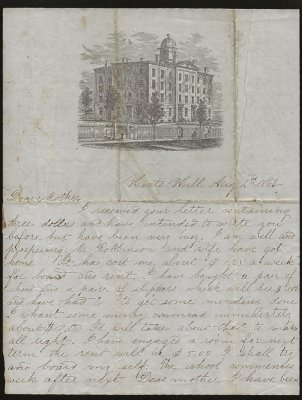 Kents Hill Aug 2nd 1861
Dear Mother
I received your letter containing
three dollars and have intended to write you
before but have been very busy. I am well and
prospering. Mr Robinson and wife have got
home. It has cost me about $1.25 a week
for board and rent. I have bought a pair of
shoes and a pair of slippers which will be $2.00
and have had to get some mending done
I want some money immediately
about $7.00 It will take about that to make
all right. I have engaged a room for next
term the rent will be I shall try
and board my self. The school commences
week after next. Dear mother I have been